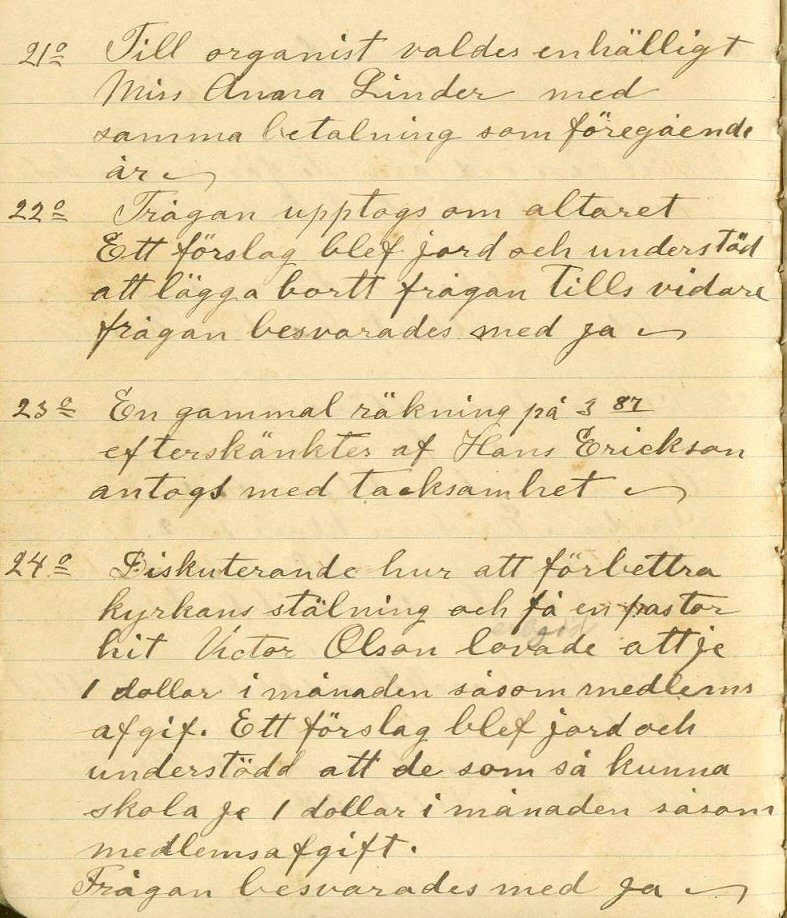 21º Till organist valdes enhälligt
Miss Anna Linder med
samma betalning som föregående
år
22º Frågan upptogs om altaret
Ett förslag blef jord och understöd
att lägga bortt frågan tills vidare
frågan besvarades med ja
23º En gammal räkning på 3 87
efterskänktes af Hans Erickson
antogs med tacksamhet
24º Diskuterande hur att förbettra
kyrkans stälning och få en pastor
hit Victor Olson lovade att je
1 dollar i månaden såsom medlems
afgif. Ett förslag blef jord och
understödd att de som så kunna
skola je 1 dollar i månaden såsom
medlemsafgift.
Frågan besvarades med ja